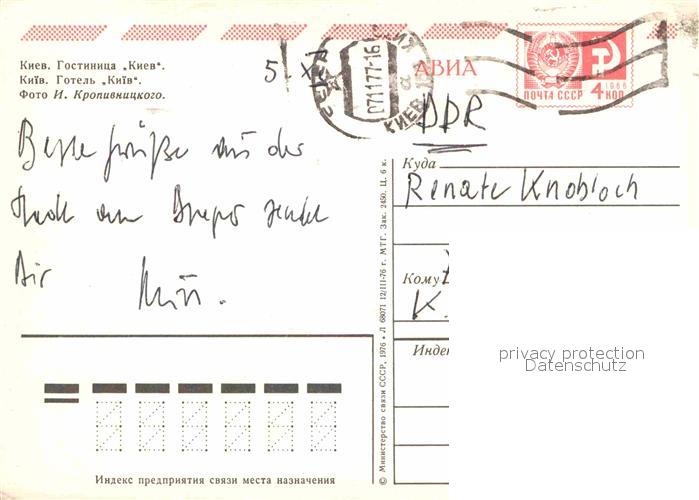 Киев. Гостиница „Киев“.
Київ. Готель „Київ“.
Фото И. Кропивницкого.
5. XI.
071177-16
КИЕВ
АВИА
ПОЧТА СССР
1966
4 КОП
DDR
Beste Grüße aus der
Stadt am Dnepr sendet
Dir
Куда
Renate Knobloch
Кому
K.
Инде
privacy protection
Datenschutz
© Министерство связи СССР, 1976 • Л 68071 12/III-76 г. МТГ. Зак. 2450. Ц. 6 к.
Индекс предприятия связи места назначения